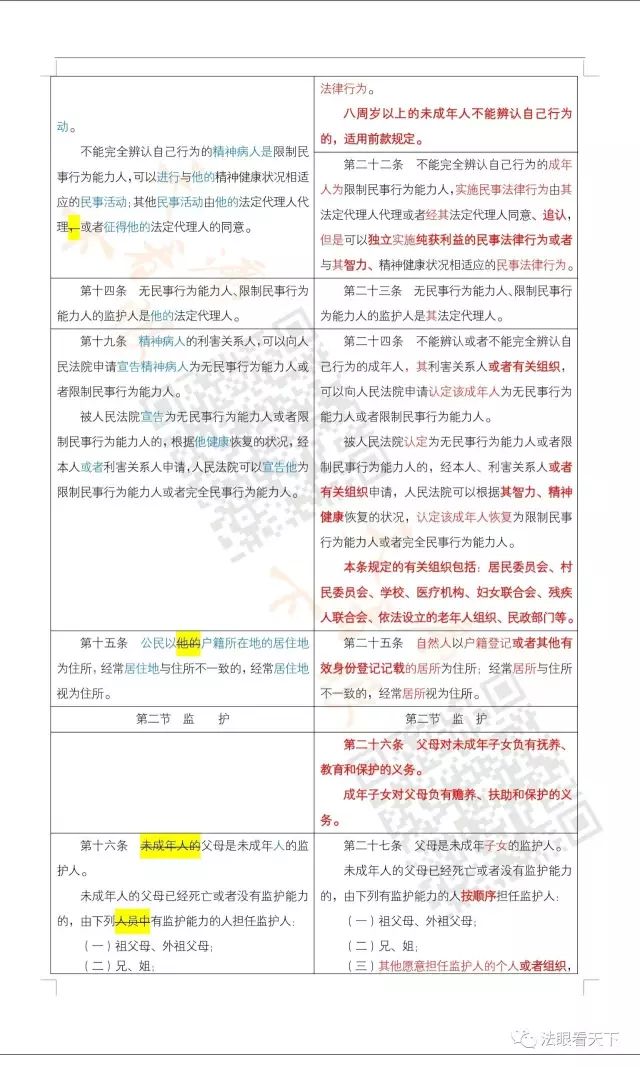 动。
不能完全辨认自己行为的精神病人是限制民
事行为能力人，可以进行与他的精神健康状况相适
应的民事活动；其他民事活动由他的法定代理人代
理，或者征得他的法定代理人的同意。
法律行为。
八周岁以上的未成年人不能辨认自己行为
的，适用前款规定。
第二十二条 不能完全辨认自己行为的成年
人为限制民事行为能力人，实施民事法律行为由其
法定代理人代理或者经其法定代理人同意、追认，
但是可以独立实施纯获利益的民事法律行为或者
与其智力、精神健康状况相适应的民事法律行为。
第十四条 无民事行为能力人、限制民事行为
能力人的监护人是他的法定代理人。
第二十三条 无民事行为能力人、限制民事行
为能力人的监护人是其法定代理人。
第十九条 精神病人的利害关系人，可以向人
民法院申请宣告精神病人为无民事行为能力人或
者限制民事行为能力人。
被人民法院宣告为无民事行为能力人或者限
制民事行为能力人的，根据他健康恢复的状况，经
本人或者利害关系人申请，人民法院可以宣告他为
限制民事行为能力人或者完全民事行为能力人。
第二十四条 不能辨认或者不能完全辨认自
己行为的成年人，其利害关系人或者有关组织，
可以向人民法院申请认定该成年人为无民事行为
能力人或者限制民事行为能力人。
被人民法院认定为无民事行为能力人或者限
制民事行为能力人的，经本人、利害关系人或者
有关组织申请，人民法院可以根据其智力、精神
健康恢复的状况，认定该成年人恢复为限制民事
行为能力人或者完全民事行为能力人。
本条规定的有关组织包括：居民委员会、村
民委员会、学校、医疗机构、妇女联合会、残疾
人联合会、依法设立的老年人组织、民政部门等。
第十五条 公民以他的户籍所在地的居住地
为住所，经常居住地与住所不一致的，经常居住地
视为住所。
第二十五条 自然人以户籍登记或者其他有
效身份登记记载的居所为住所；经常居所与住所
不一致的，经常居所视为住所。
第二节 监 护
第二节 监 护
第二十六条 父母对未成年子女负有抚养、
教育和保护的义务。
成年子女对父母负有赡养、扶助和保护的义
务。
第十六条 未成年人的父母是未成年人的监
护人。
未成年人的父母已经死亡或者没有监护能力
的，由下列人员中有监护能力的人担任监护人：
（一）祖父母、外祖父母；
（二）兄、姐；
第二十七条 父母是未成年子女的监护人。
未成年人的父母已经死亡或者没有监护能力
的，由下列有监护能力的人按顺序担任监护人：
（一）祖父母、外祖父母；
（二）兄、姐；
（三）其他愿意担任监护人的个人或者组织，
法眼看天下